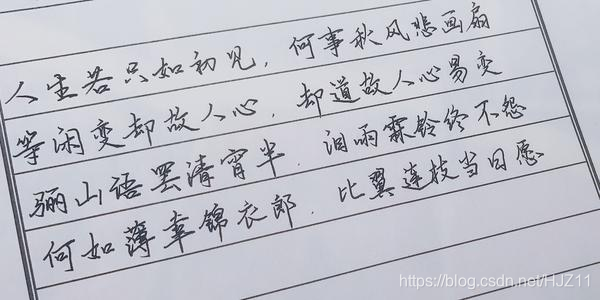 人生若只如初见，何事秋风悲画扇
等闲变却故人心，却道故人心易变
骊山语罢清宵半．泪雨霖铃终不怨
何如薄幸锦衣郎．比翼连枝当日愿
https://blog.csdn.net/HJZ11